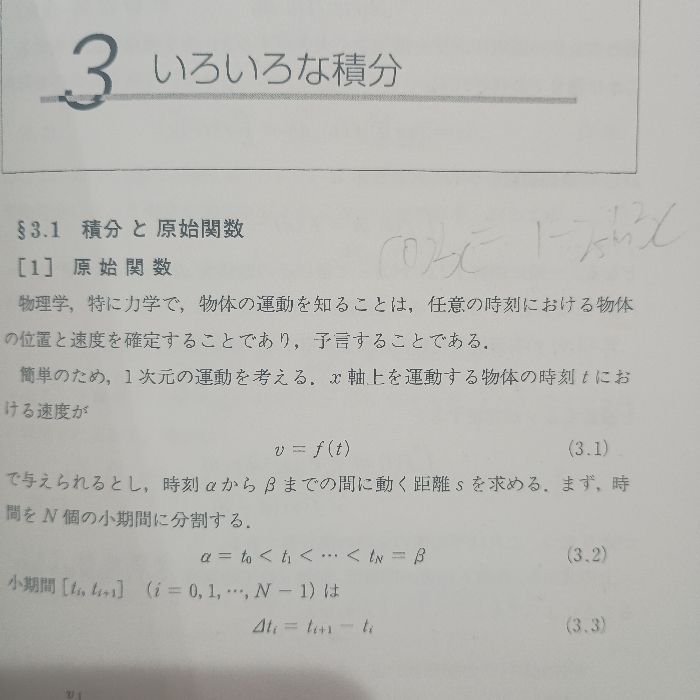 3 いろいろな積分
§3.1 積分と原始関数
cos2x = 1-2sin²x
[1] 原始関数
物理学，特に力学で，物体の運動を知ることは，任意の時刻における物体
の位置と速度を確定することであり，予言することである．
簡単のため，1次元の運動を考える．x 軸上を運動する物体の時刻 t にお
ける速度が
v = f(t) (3.1)
で与えられるとし，時刻 α から β までの間に動く距離 s を求める．まず，時
間を N 個の小期間に分割する．
α = t₀ < t₁ < ⋯ < t_N = β (3.2)
小期間 [tᵢ, tᵢ₊₁] (i = 0, 1, ⋯, N − 1) は
Δtᵢ = tᵢ₊₁ − tᵢ (3.3)